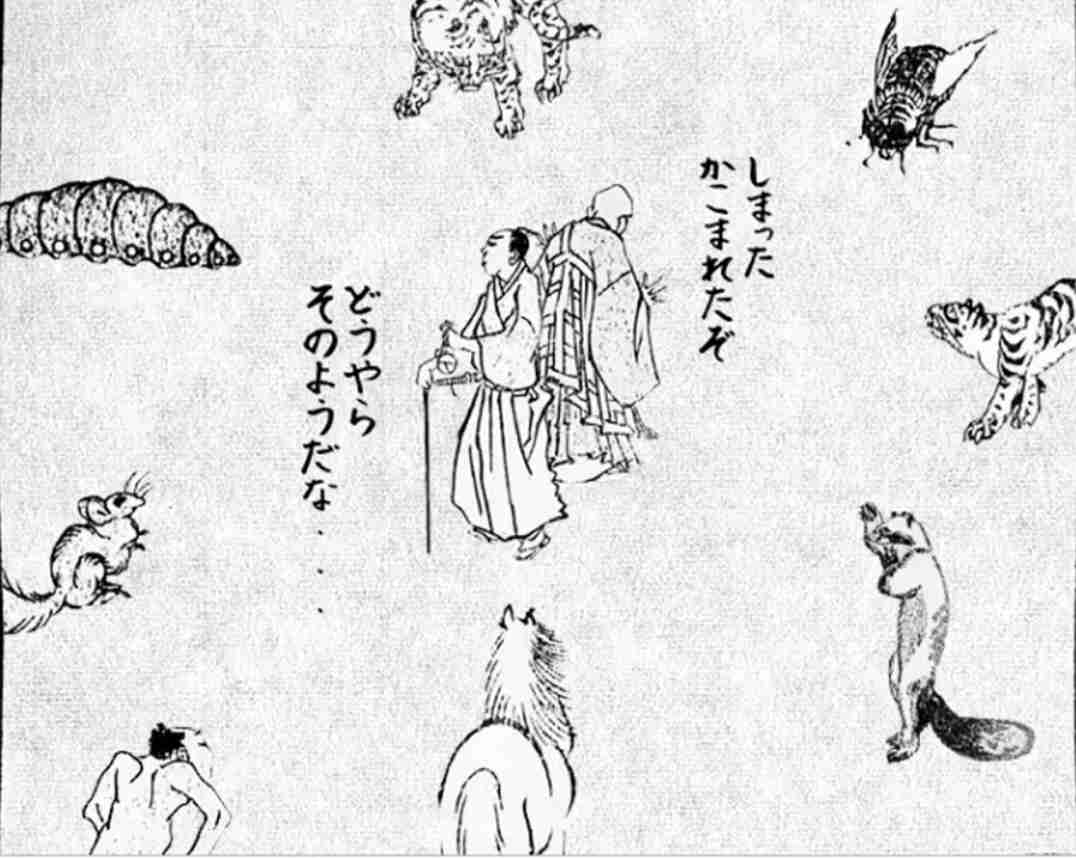 しまった
かこまれたぞ
どうやら
そのようだな...